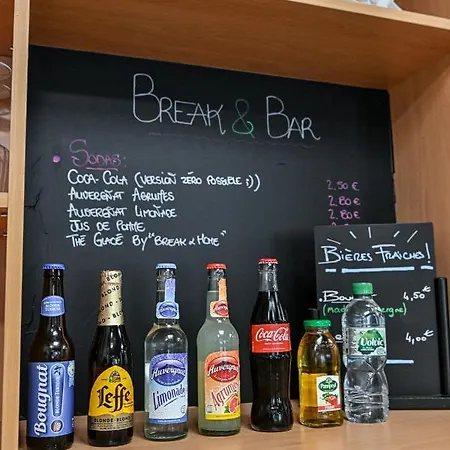 BREAK & BAR
SODAS:
COCA-COLA (VERSION ZÉRO POSSIBLE ;)) 2,50 €
AUVERGNAT AGRUMES 2,80 €
AUVERGNAT LIMONADE 2,80 €
JUS DE POMME
THÉ GLACÉ BY "BREAK & HOME"
BIÈRES FRAÎCHES !
4,50 €
4,00 €
Bougnat
BLONDE
Leffe
BLONDE
Auvergnat
Limonade
Auvergnat
Agrumes
Coca-Cola
Pampryl
Volvic